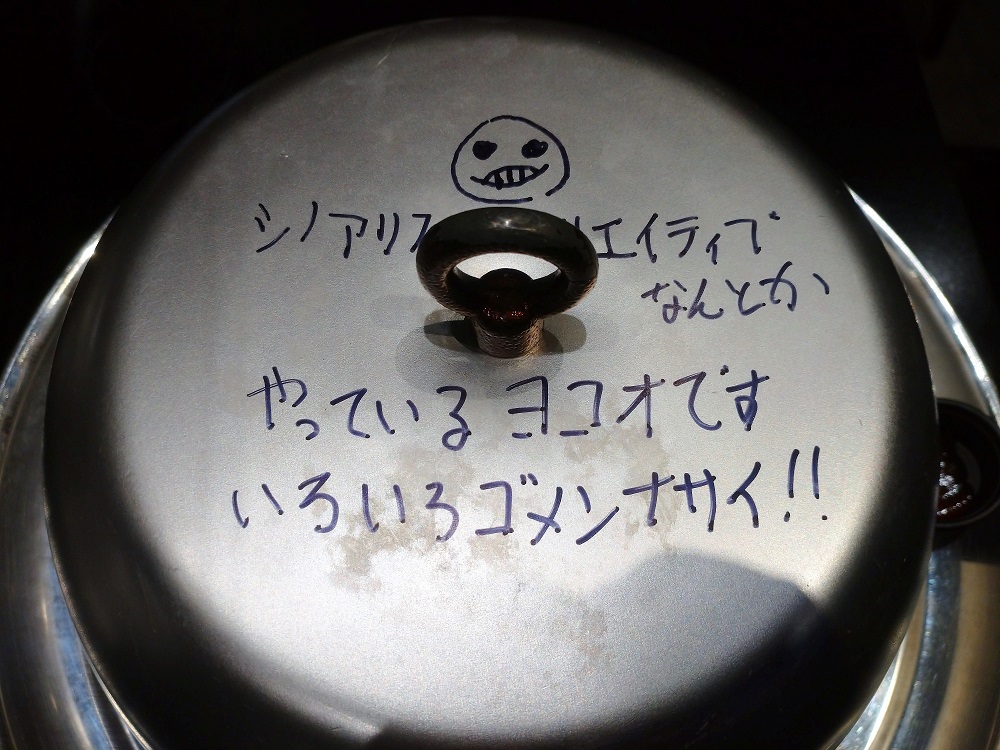 シノアリス リエイティブ
なんとか
やっている ヨコオです
いろいろゴメンナサイ!!